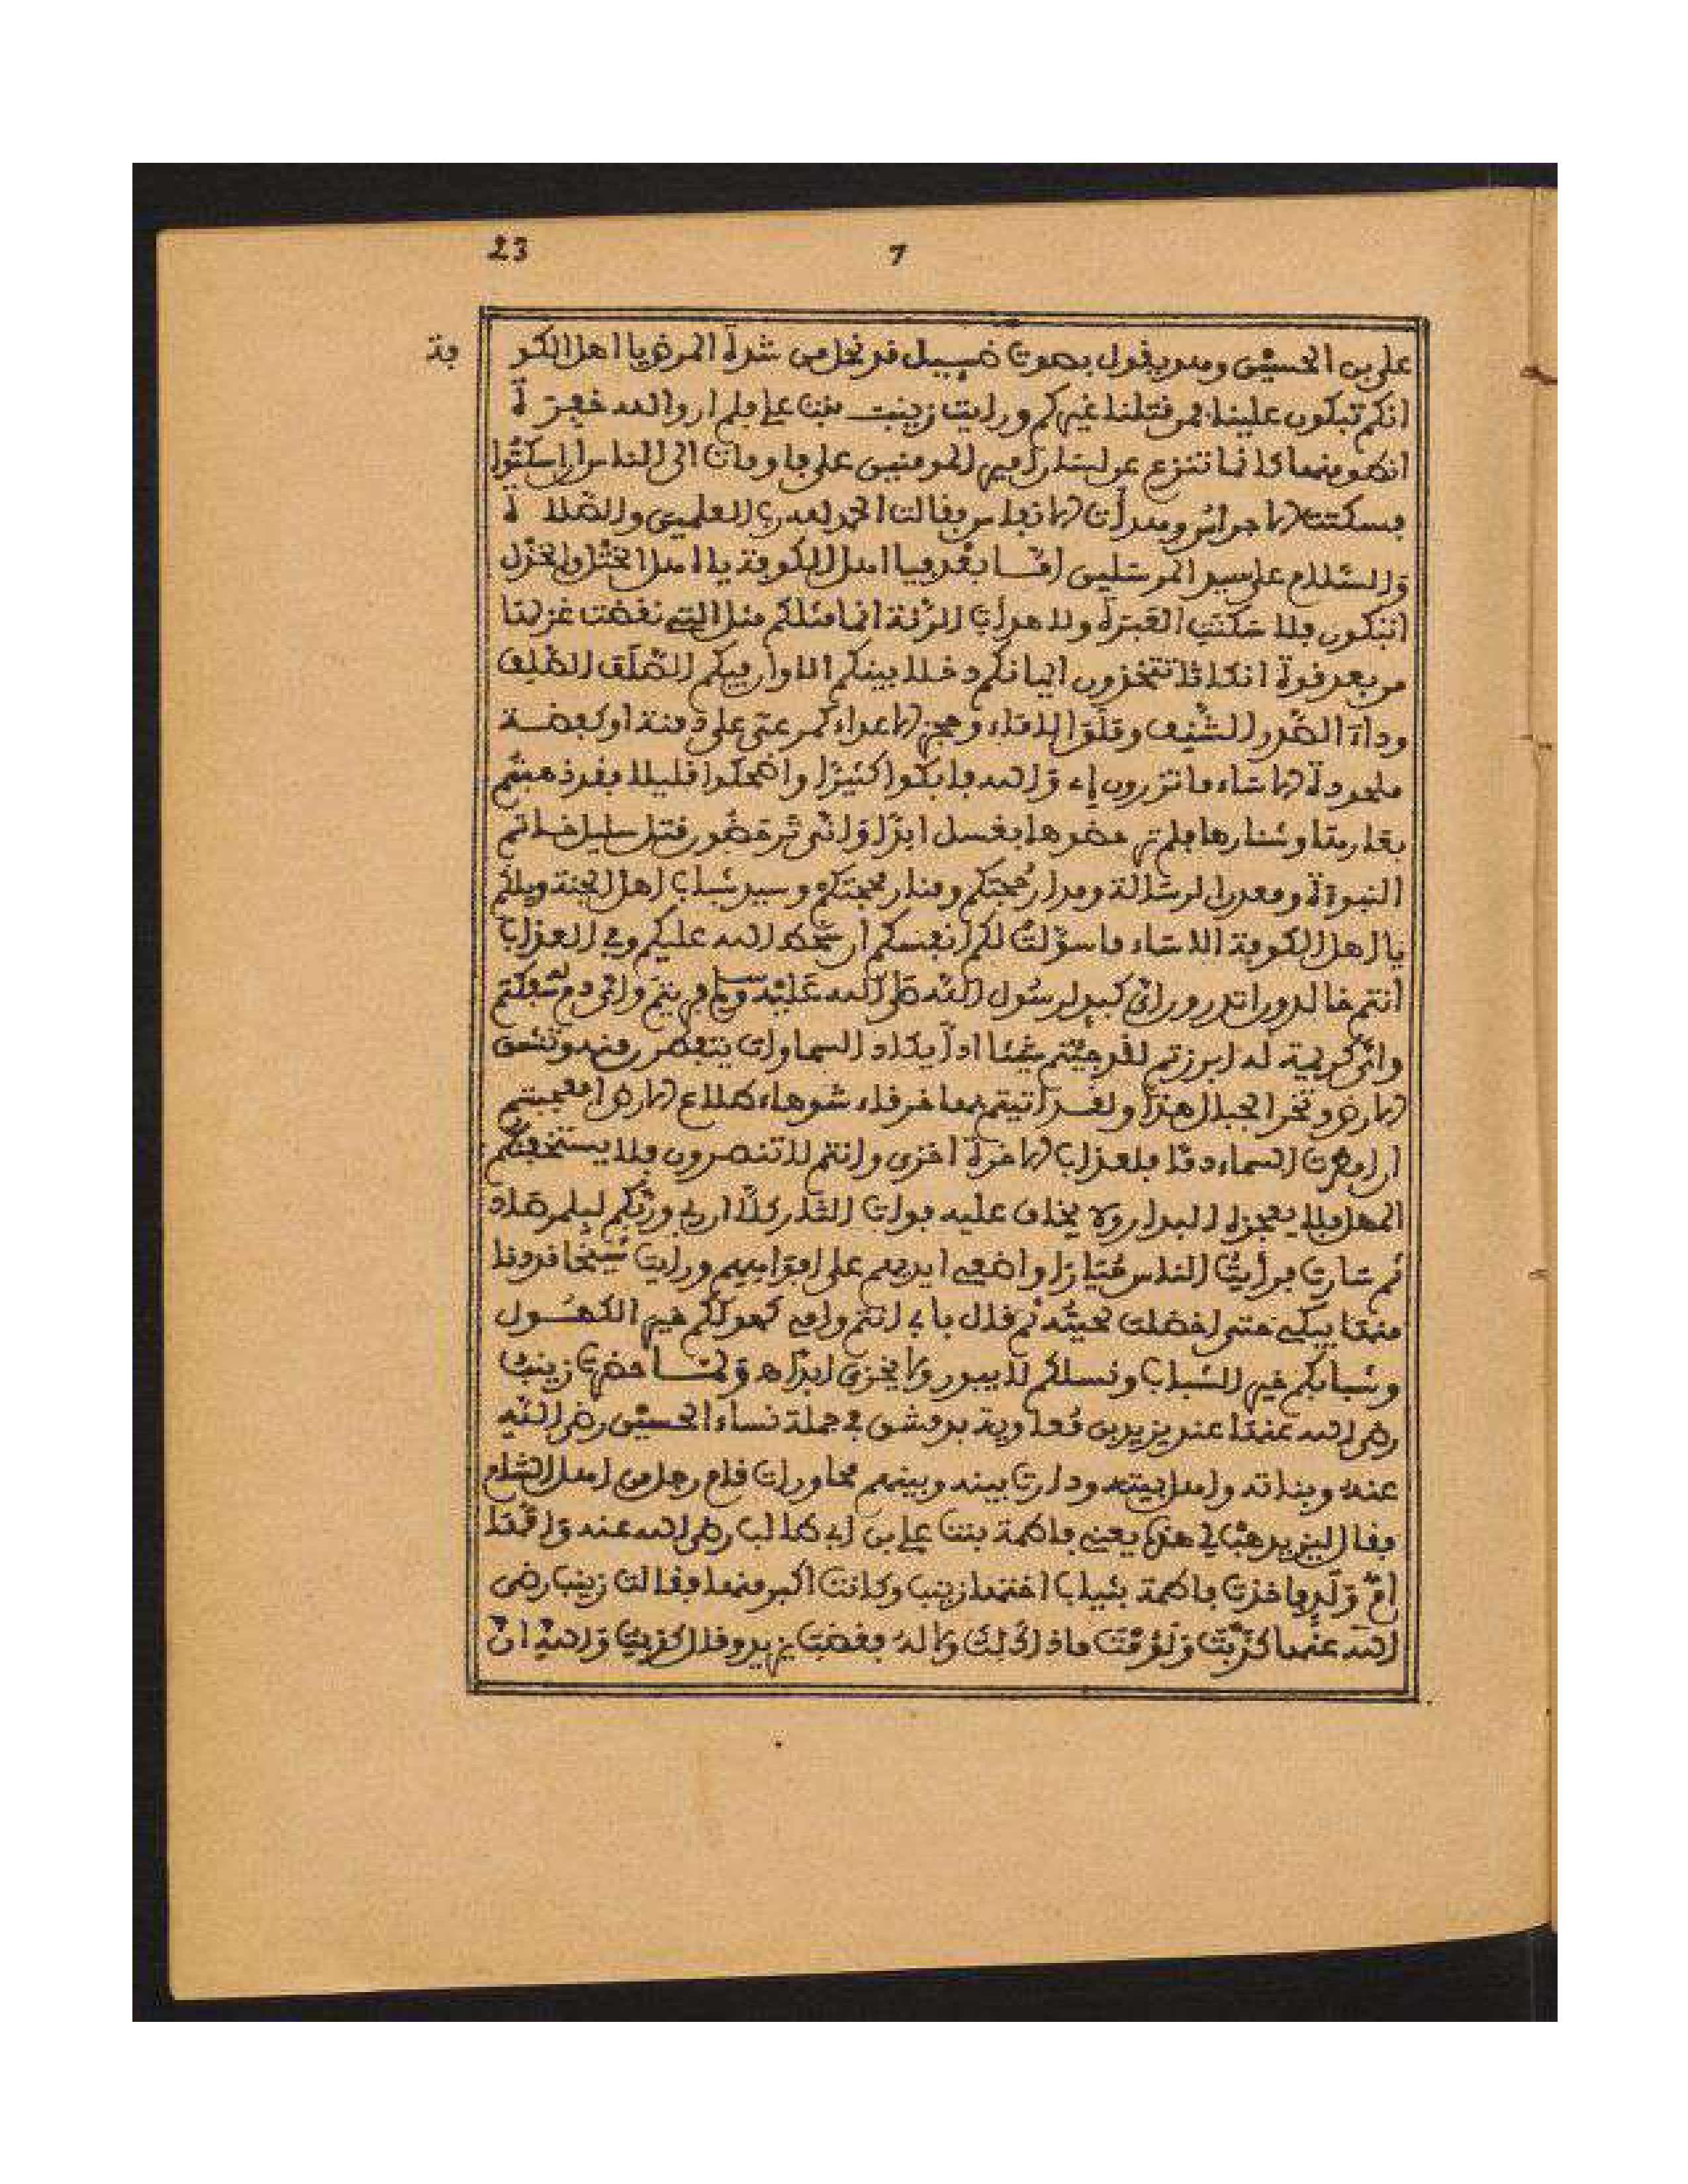 23
7
على بن الحسين وهو يقول بصوت ضييل قد نحل من شدة المرض يا اهل الكو
فة
انكم تبكون علينا فمن قتلنا غيركم ورايت زينب بنت على فلم ار والله خفرة
انطق منها كانما تنزع عن لسان امير المومنين على فاومات الى الناس ان اسكتوا
فسكتت الاجراس وهدأت الانفاس فقالت الحمد لله رب العلمين والصلاة
والسلام على سيد المرسلين اما بعد فيا اهل الكوفة يا اهل الختل والخذل
اتبكون فلا سكنت العبرة ولا هدأت الرنة انما مثلكم مثل التي نقضت غزلها
من بعد قوة انكاثا تتخذون ايمانكم دخلا بينكم الا وان فيكم الصلف الظلف
وداء الصدر الشنف وملق الاماء وحجز الاعداء كمرعى على دمنة او كفضة
ملحودة الا ساء ما تزرون اي والله فابكوا كثيرا واضحكوا قليلا فقد ذهبتم
بعارها وشنارها فلم ترحضوها بغسل ابدا وانى ترحضون قتل سليل خاتم
النبوة ومعدن الرسالة ومدار حجتكم ومنار محجتكم وسيد شباب اهل الجنة ويلكم
يا اهل الكوفة الا ساء ما سولت لكم انفسكم ان سخط الله عليكم وفى العذاب
انتم خالدون اتدرون اى كبد لرسول الله صلى الله عليه وسلم فريتم واى دم له سفكتم
واى كريمة له ابرزتم لقد جيتم شيئا ادا يكاد السماوات يتفطرن منه وتنشق
الارض وتخر الجبال هدا ولقد اتيتم بها خرقاء شوهاء طلاع الارض افعجبتم
ان امطرت السماء دما فلعذاب الاخرة اخزى وانتم لا تنصرون فلا يستخفنكم
المهل فلا يعجزه البدار ولا يخاف عليه فوات الثار كلا ان ربى وربكم لبالمرصاد
ثم سارت فرأيت الناس حيارى واضعى ايديهم على افواههم ورايت شيخا قد دنا
منها يبكى حتى اخضلت لحيته ثم قال بابى انتم وامى كهولكم خير الكهول
وشبابكم خير الشباب ونسلكم لا يبور ولا يخزى ابدا ه ولمـا حضرت زينب
رضى الله عنها عند يزيد بن معاوية بدمشق فى جملة نساء الحسين رضى الله
عنه وبناته واهل بيته ودارت بينه وبينهم محاورات قام رجل من اهل الشام
فقال ليزيد هب لى هذه يعنى فاطمة بنت على بن ابى طالب رضى الله عنه وامها
ام ولد فاخذت فاطمة بثياب اختها زينب وكانت اكبر منها فقالت زينب رضى
الله عنها كذبت ولؤمت ما ذاك لك ولا له فغضب يزيد وقال كذبت والله ان